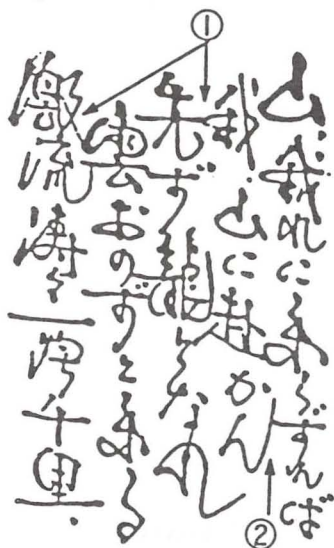 ①
山我れに来らずんば
我山に赴かん
先ず龍となれ
雲おのずと来る
激流 一瀉千里.
②